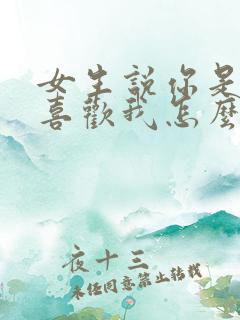 女生說你是
喜歡我怎麼
夜十三
未经同意禁止转载